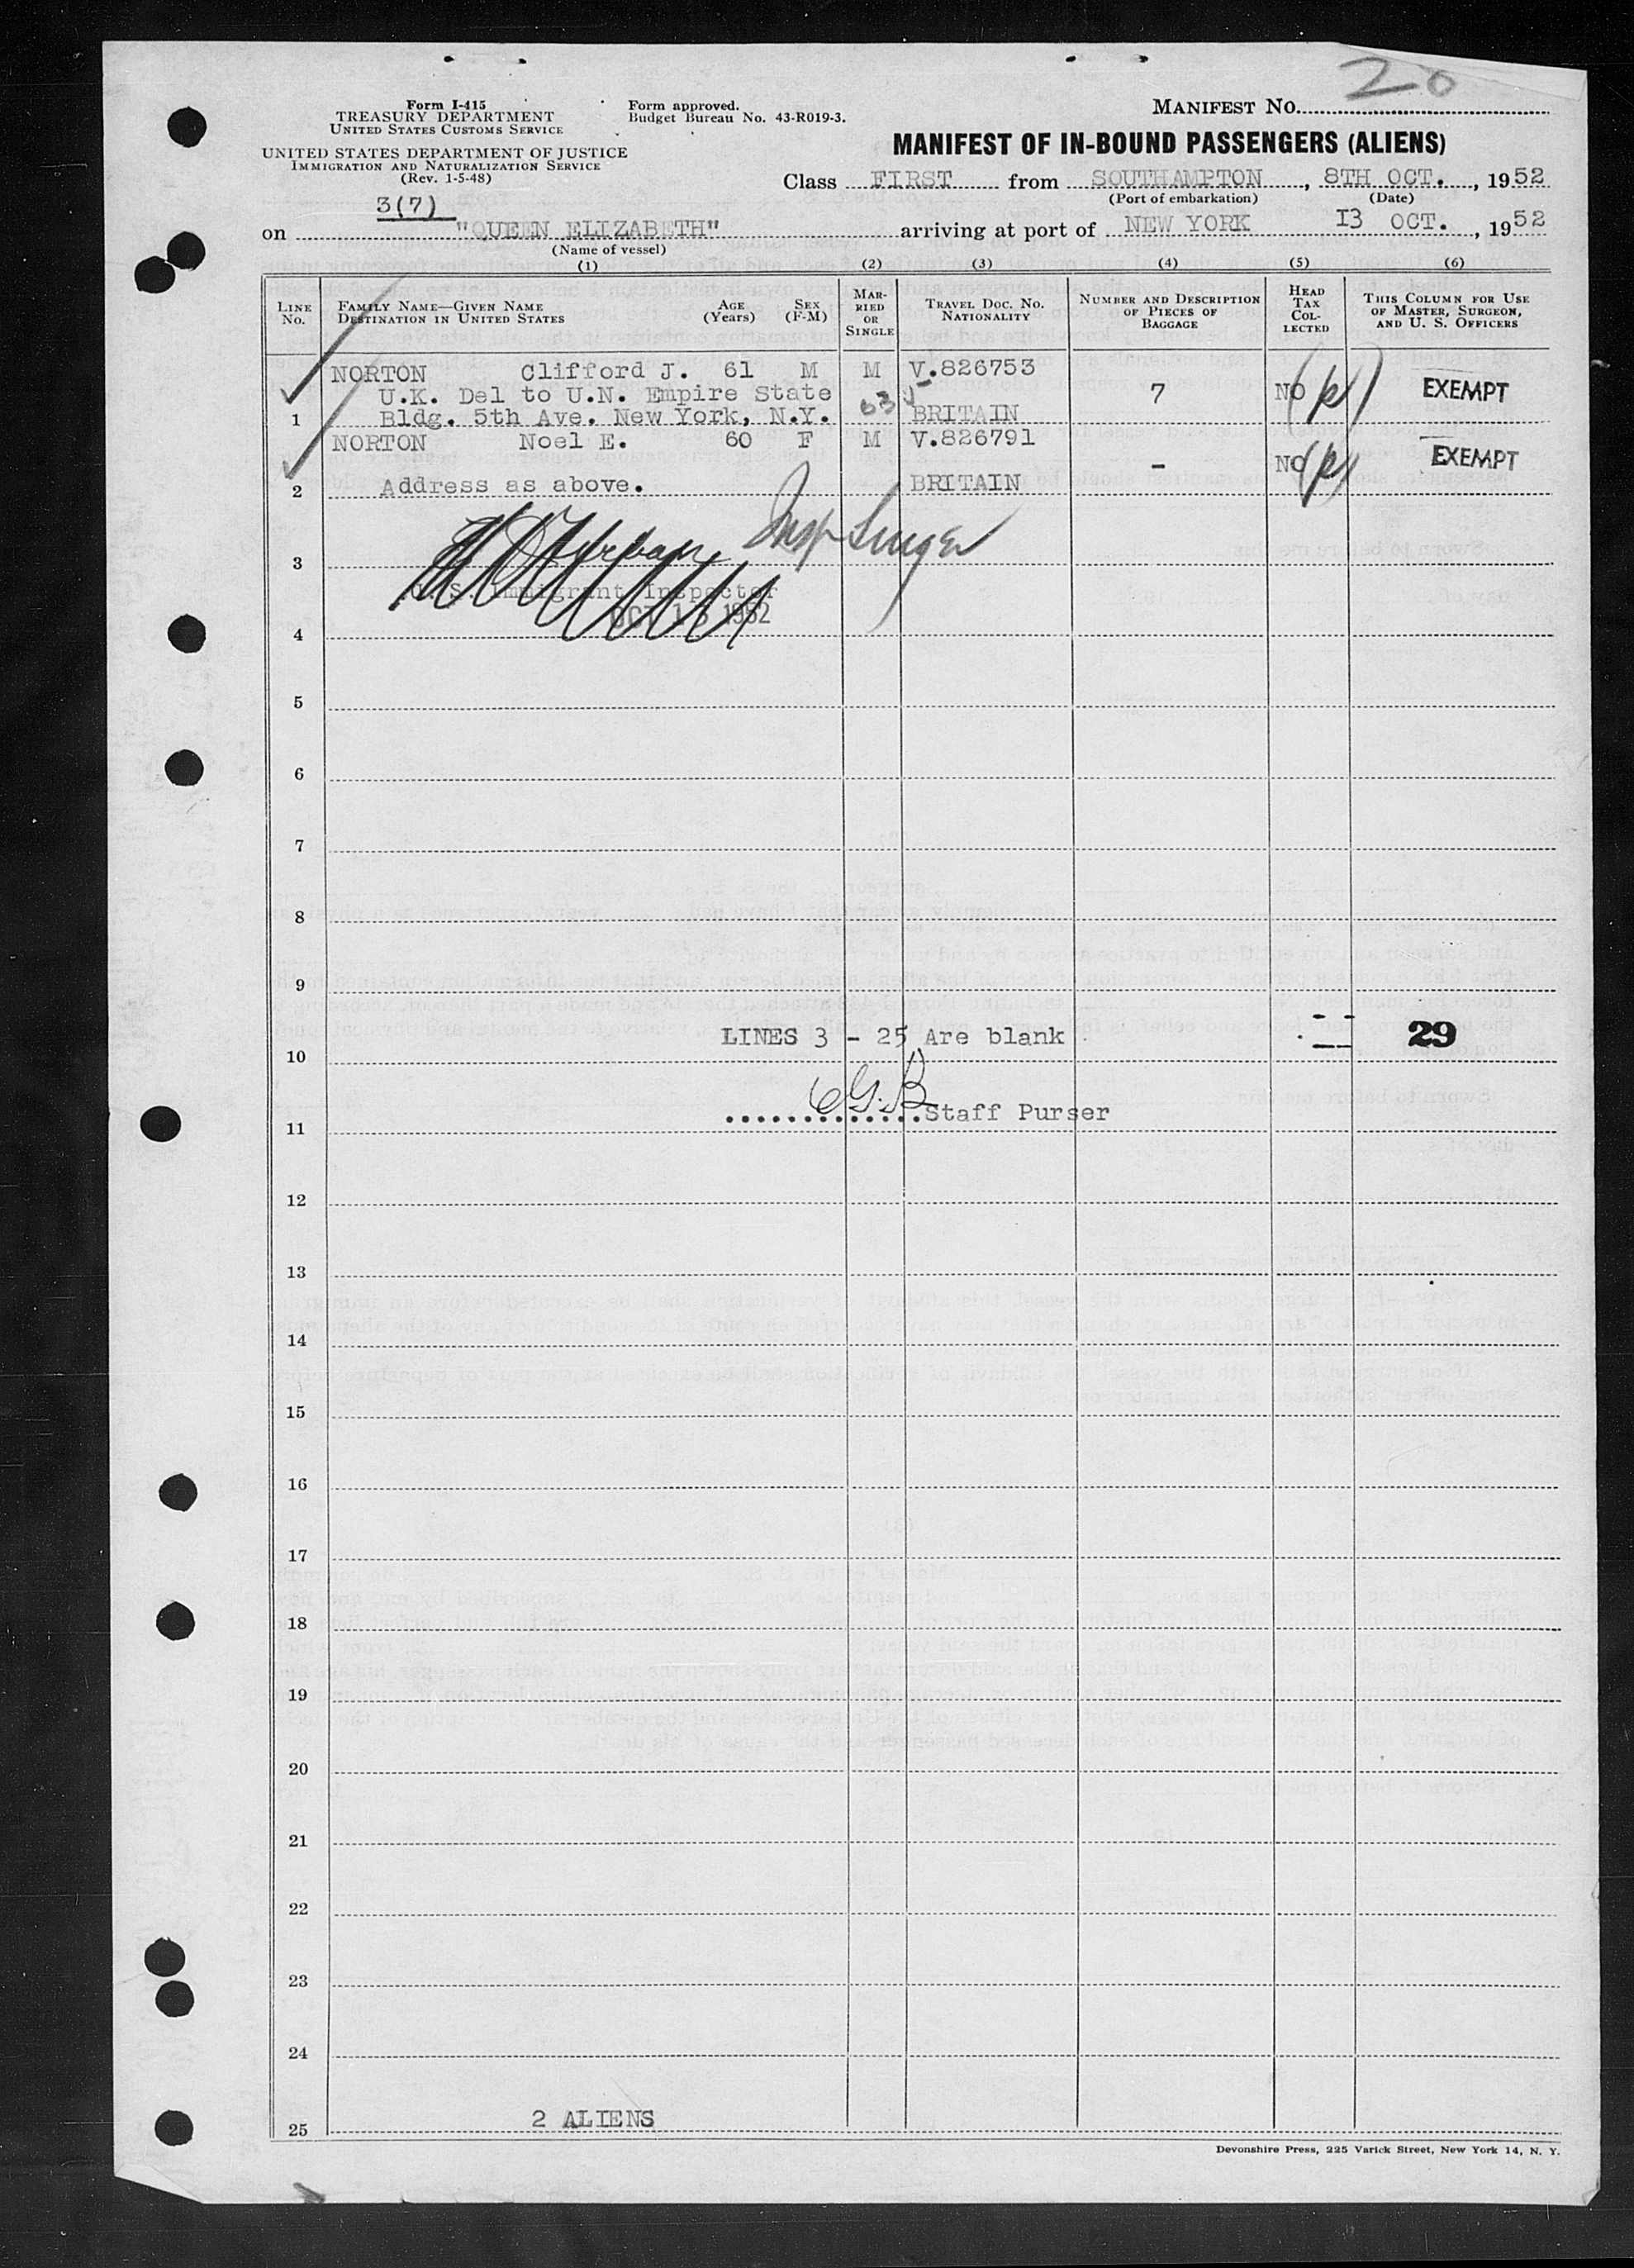 20
Form I-415
TREASURY DEPARTMENT
UNITED STATES CUSTOMS SERVICE
Form approved.
Budget Bureau No. 43-R019-3.
MANIFEST NO.
UNITED STATES DEPARTMENT OF JUSTICE
IMMIGRATION AND NATURALIZATION SERVICE
(Rev. 1-5-48)
MANIFEST OF IN-BOUND PASSENGERS (ALIENS)
Class FIRST from SOUTHAMPTON, 8TH OCT., 1952
(Port of embarkation) (Date)
3(7)
on "QUEEN ELIZABETH" arriving at port of NEW YORK 13 OCT., 1952
(Name of vessel)
(1) (2) (3) (4) (5) (6)
LINE NO. FAMILY NAME—GIVEN NAME DESTINATION IN UNITED STATES AGE (Years) SEX (F-M) MARRIED OR SINGLE TRAVEL DOC. NO. NATIONALITY NUMBER AND DESCRIPTION OF PIECES OF BAGGAGE HEAD TAX COLLECTED THIS COLUMN FOR USE OF MASTER, SURGEON, AND U. S. OFFICERS
NORTON Clifford J. 61 M M V.826753
U.K. Del to U.N. Empire State 7 NO EXEMPT
1 Bldg. 5th Ave. New York, N.Y. BRITAIN
NORTON Noel E. 60 F M V.826791
- NO EXEMPT
2 Address as above. BRITAIN
Insp Singer
3
U.S. Immigrant Inspector
OCT 13 1952
4
5
6
7
8
9
LINES 3 - 25 Are blank 29
10
Staff Purser
11
12
13
14
15
16
17
18
19
20
21
22
23
24
2 ALIENS
25
Devonshire Press, 225 Varick Street, New York 14, N. Y.